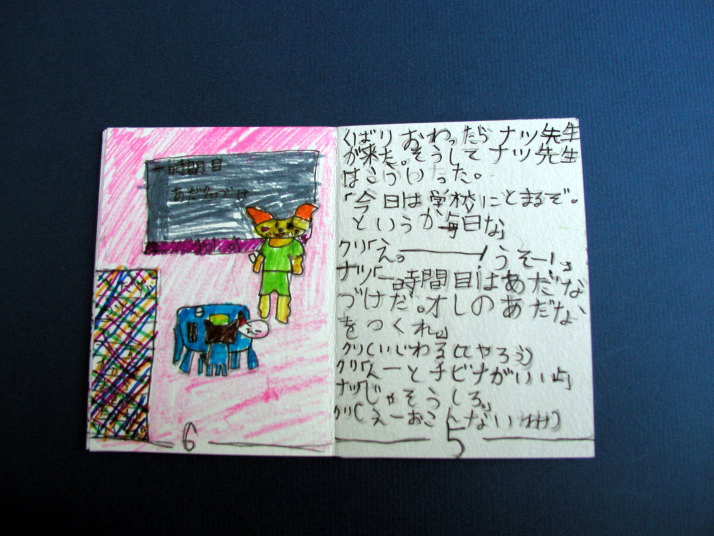 くばりおわったらナツ先生
が来た。そうしてナツ先生
はこういった。
「今日は学校にとまるぞ。
というか毎日な
クリ「えっ――――！うそー！」
ナツ「一時間目はあだな
づけだ。オレのあだな
をつくれ」
クリ(いじわるしてやろう)
クリ「えーとチビナがいい」
ナツ「じゃそうしろ」
クリ(えーおこんない
5
一時間目
あだ名づけ
6